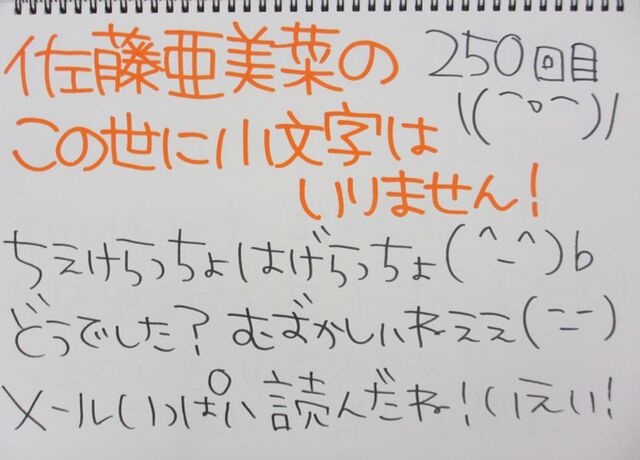 佐藤亜美菜の 250回目
この世に小文字は \(⌒o⌒)/
いりません!
ちえけらっちょはげらっちょ(^-^)b
どうでした?むずかしいねええ(ニニ)
メールいっぱい読んだね!いえい!